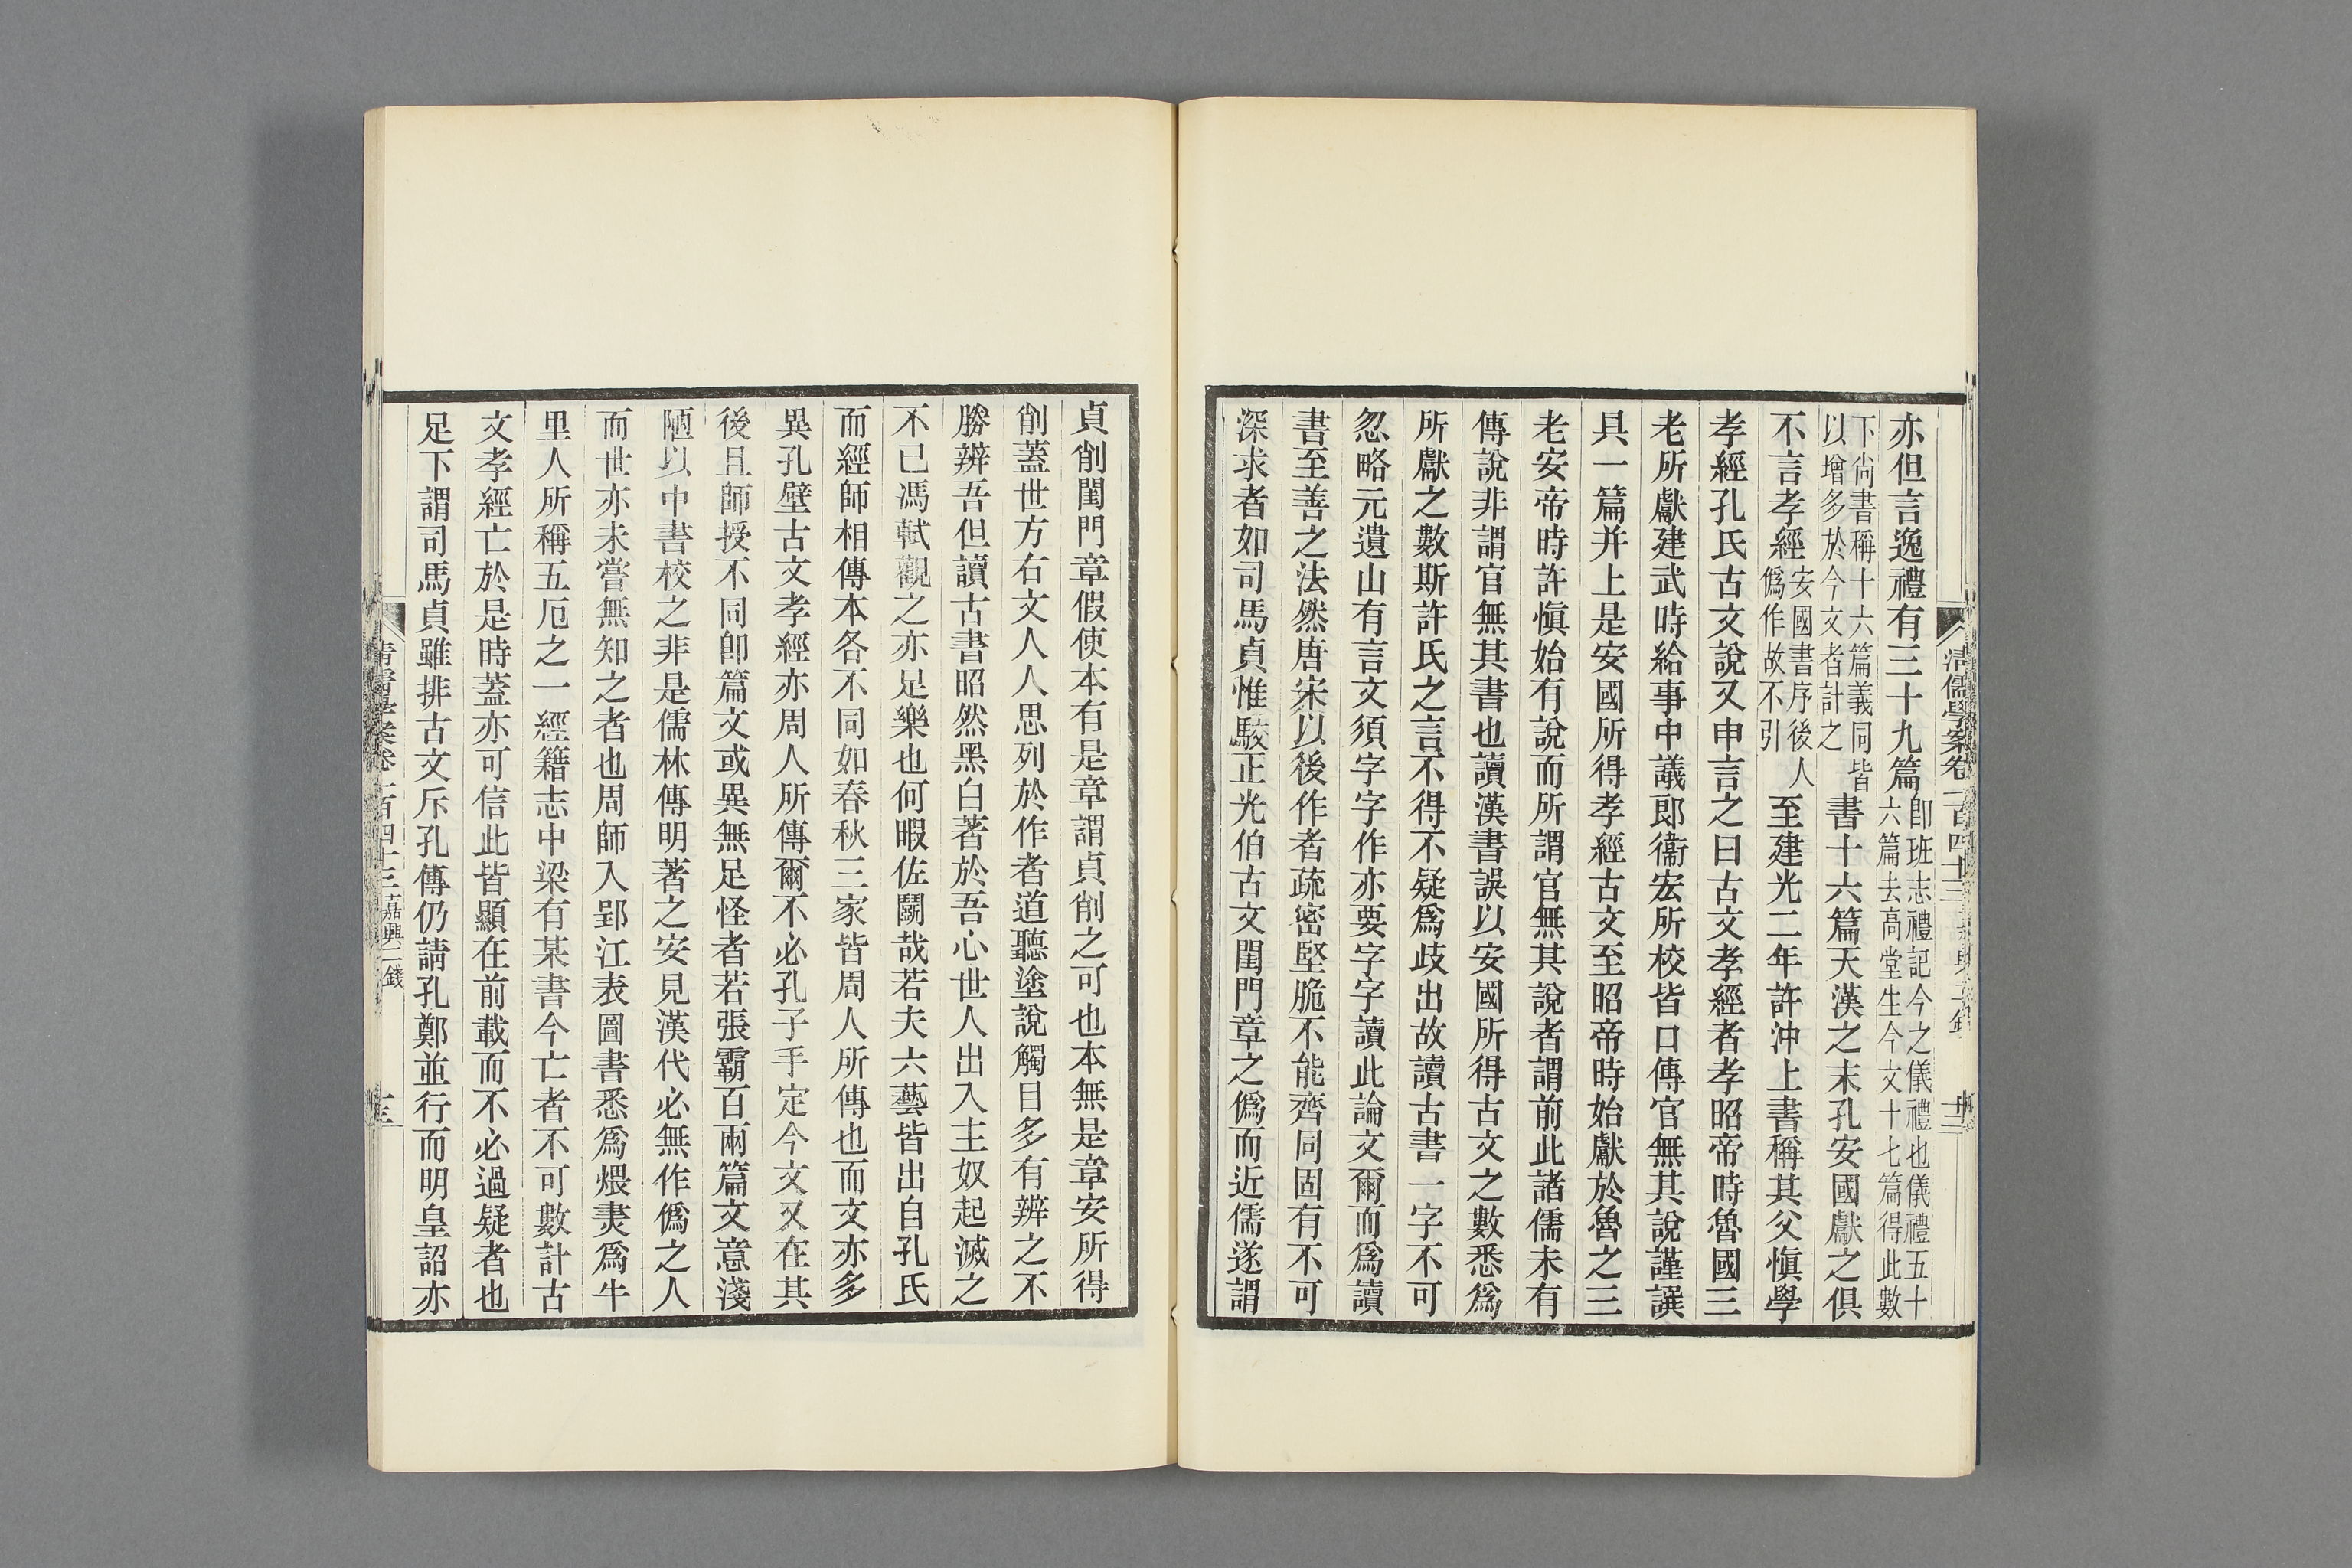 清儒學案卷一百四十三 嘉興二錢 十二
亦但言逸禮有三十九篇卽班志禮記今之儀禮也儀禮五十六篇去高堂生今文十七篇得此數
下尙書稱十六篇義同皆以增多於今文者計之書十六篇天漢之末孔安國獻之俱
不言孝經安國書序後人僞作故不引至建光二年許沖上書稱其父愼學
孝經孔氏古文說又申言之曰古文孝經者孝昭帝時魯國三
老所獻建武時給事中議郎衞宏所校皆口傳官無其說謹譔
具一篇并上是安國所得孝經古文至昭帝時始獻於魯之三
老安帝時許愼始有說而所謂官無其說者謂前此諸儒未有
傳說非謂官無其書也讀漢書誤以安國所得古文之數悉爲
所獻之數斯許氏之言不得不疑爲歧出故讀古書一字不可
忽略元遺山有言文須字字作亦要字字讀此論文爾而爲讀
書至善之法然唐宋以後作者疏密堅脆不能齊同固有不可
深求者如司馬貞惟駮正光伯古文閨門章之僞而近儒遂謂
貞削閨門章假使本有是章謂貞削之可也本無是章安所得
削蓋世方右文人人思列於作者道聽塗說觸目多有辨之不
勝辨吾但讀古書昭然黑白著於吾心世人出入主奴起滅之
不已馮軾觀之亦足樂也何暇佐鬬哉若夫六藝皆出自孔氏
而經師相傳本各不同如春秋三家皆周人所傳也而文亦多
異孔壁古文孝經亦周人所傳爾不必孔子手定今文又在其
後且師授不同卽篇文或異無足怪者若張霸百兩篇文意淺
陋以中書校之非是儒林傳明著之安見漢代必無作僞之人
而世亦未嘗無知之者也周師入郢江表圖書悉爲煨燹爲牛
里人所稱五厄之一經籍志中梁有某書今亡者不可數計古
文孝經亡於是時蓋亦可信此皆顯在前載而不必過疑者也
足下謂司馬貞雖排古文斥孔傳仍請孔鄭並行而明皇詔亦
清儒學案卷一百四十三 嘉興二錢 十三